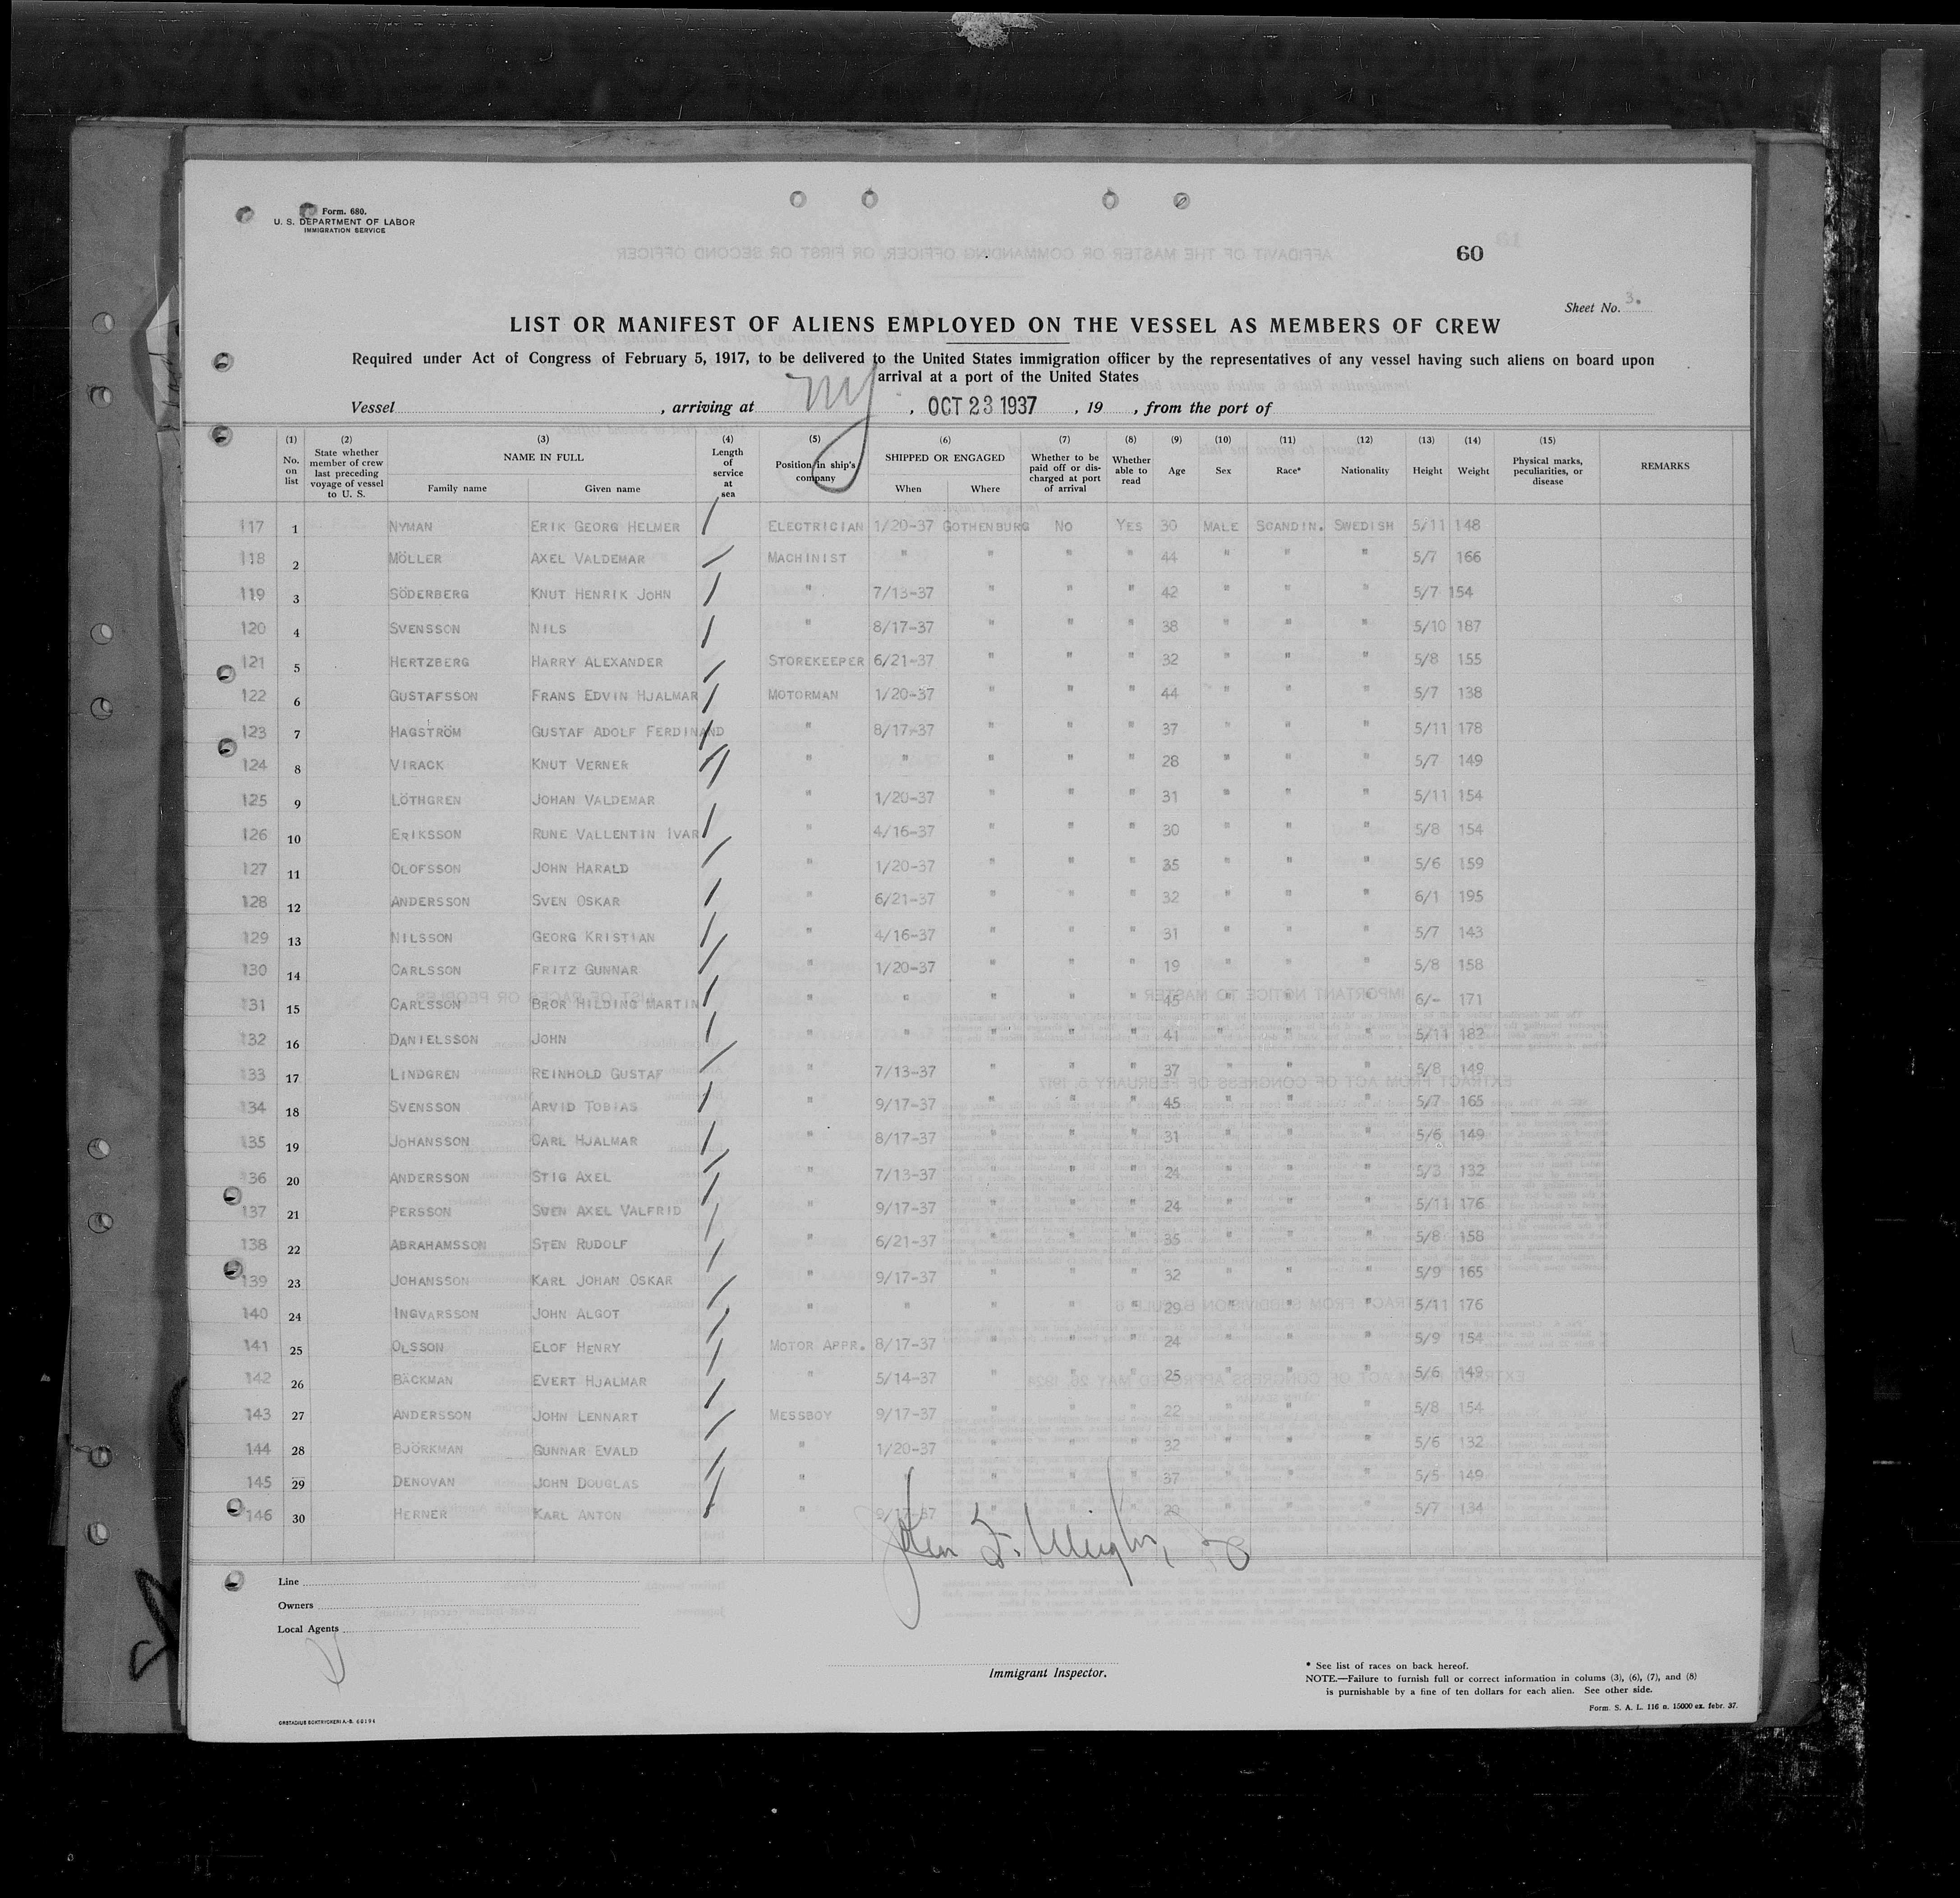 Form. 680.
U. S. DEPARTMENT OF LABOR
IMMIGRATION SERVICE
60
Sheet No. 3.
LIST OR MANIFEST OF ALIENS EMPLOYED ON THE VESSEL AS MEMBERS OF CREW
Required under Act of Congress of February 5, 1917, to be delivered to the United States immigration officer by the representatives of any vessel having such aliens on board upon
arrival at a port of the United States
Vessel , arriving at NY , OCT 23 1937 , 19 , from the port of
(1) No. on list (2) State whether member of crew last preceding voyage of vessel to U. S. (3) NAME IN FULL Family name Given name (4) Length of service at sea (5) Position in ship's company (6) SHIPPED OR ENGAGED When Where (7) Whether to be paid off or discharged at port of arrival (8) Whether able to read (9) Age (10) Sex (11) Race* (12) Nationality (13) Height (14) Weight (15) Physical marks, peculiarities, or disease REMARKS
117 1 NYMAN ERIK GEORG HELMER ELECTRICIAN 1/20-37 GOTHENBURG NO YES 30 MALE SCANDIN. SWEDISH 5/11 148
118 2 MÖLLER AXEL VALDEMAR MACHINIST " " " " 44 " " " 5/7 166
119 3 SÖDERBERG KNUT HENRIK JOHN " 7/13-37 " " " 42 " " " 5/7 154
120 4 SVENSSON NILS " 8/17-37 " " " 38 " " " 5/10 187
121 5 HERTZBERG HARRY ALEXANDER STOREKEEPER 6/21-37 " " " 32 " " " 5/8 155
122 6 GUSTAFSSON FRANS EDVIN HJALMAR MOTORMAN 1/20-37 " " " 44 " " " 5/7 138
123 7 HAGSTRÖM GUSTAF ADOLF FERDINAND " 8/17-37 " " " 37 " " " 5/11 178
124 8 VIRACK KNUT VERNER " " " " " 28 " " " 5/7 149
125 9 LÖTHGREN JOHAN VALDEMAR " 1/20-37 " " " 31 " " " 5/11 154
126 10 ERIKSSON RUNE VALLENTIN IVAR " 4/16-37 " " " 30 " " " 5/8 154
127 11 OLOFSSON JOHN HARALD " 1/20-37 " " " 35 " " " 5/6 159
128 12 ANDERSSON SVEN OSKAR " 6/21-37 " " " 32 " " " 6/1 195
129 13 NILSSON GEORG KRISTIAN " 4/16-37 " " " 31 " " " 5/7 143
130 14 CARLSSON FRITZ GUNNAR " 1/20-37 " " " 19 " " " 5/8 158
131 15 CARLSSON BROR HILDING MARTIN " " " " " 45 " " " 6/- 171
132 16 DANIELSSON JOHN " " " " " 41 " " " 5/11 182
133 17 LINDGREN REINHOLD GUSTAF " 7/13-37 " " " 37 " " " 5/8 149
134 18 SVENSSON ARVID TOBIAS " 9/17-37 " " " 45 " " " 5/7 165
135 19 JOHANSSON CARL HJALMAR " 8/17-37 " " " 31 " " " 5/6 149
136 20 ANDERSSON STIG AXEL " 7/13-37 " " " 24 " " " 5/3 132
137 21 PERSSON SVEN AXEL VALFRID " 9/17-37 " " " 24 " " " 5/11 176
138 22 ABRAHAMSSON STEN RUDOLF " 6/21-37 " " " 35 " " " 5/8 158
139 23 JOHANSSON KARL JOHAN OSKAR " 9/17-37 " " " 32 " " " 5/9 165
140 24 INGVARSSON JOHN ALGOT " " " " " 29 " " " 5/11 176
141 25 OLSSON ELOF HENRY MOTOR APPR. 8/17-37 " " " 24 " " " 5/9 154
142 26 BÄCKMAN EVERT HJALMAR " 5/14-37 " " " 25 " " " 5/6 149
143 27 ANDERSSON JOHN LENNART MESSBOY 9/17-37 " " " 22 " " " 5/8 154
144 28 BJÖRKMAN GUNNAR EVALD " 1/20-37 " " " 32 " " " 5/6 132
145 29 DENOVAN JOHN DOUGLAS " " " " " 37 " " " 5/5 149
146 30 HERNER KARL ANTON " 9/17-37 " " " 29 " " " 5/7 134
Line
Owners
Local Agents
Immigrant Inspector.
* See list of races on back hereof.
NOTE.—Failure to furnish full or correct information in colums (3), (6), (7), and (8)
is punishable by a fine of ten dollars for each alien. See other side.
Form. S. A. L. 116 n. 15000 ex. febr. 37.